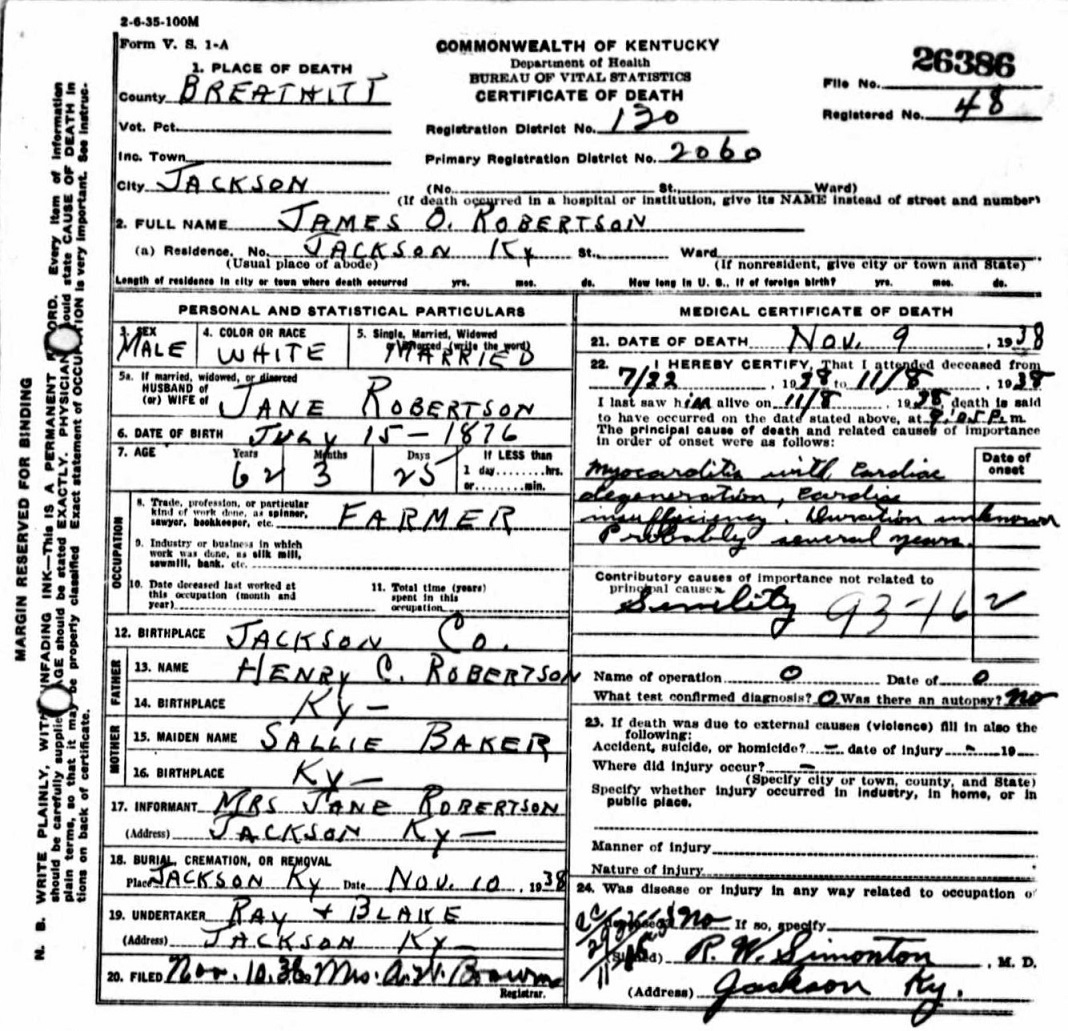 2-6-35-100M
Form V. S. 1-A
COMMONWEALTH OF KENTUCKY
Department of Health
BUREAU OF VITAL STATISTICS
CERTIFICATE OF DEATH
26386
File No.
Registered No. 48
1. PLACE OF DEATH
County BREATHITT
Vot. Pct.
Registration District No. 130
Inc. Town
Primary Registration District No. 2060
City JACKSON
(No. St., Ward)
(If death occurred in a hospital or institution, give its NAME instead of street and number)
2. FULL NAME JAMES O. ROBERTSON
(a) Residence, No. JACKSON Ky St., Ward
(Usual place of abode) (If nonresident, give city or town and State)
Length of residence in city or town where death occurred yrs. mos. ds. How long in U. S., if of foreign birth? yrs. mos. ds.
PERSONAL AND STATISTICAL PARTICULARS
3. SEX
MALE
4. COLOR OR RACE
WHITE
5. Single, Married, Widowed
or Divorced (write the word)
MARRIED
5a. If married, widowed, or divorced
HUSBAND of
(or) WIFE of JANE ROBERTSON
6. DATE OF BIRTH JULY 15-1876
7. AGE Years Months Days If LESS than
62 3 25 1 day hrs.
or min.
OCCUPATION
8. Trade, profession, or particular
kind of work done, as spinner,
sawyer, bookkeeper, etc. FARMER
9. Industry or business in which
work was done, as silk mill,
sawmill, bank, etc.
10. Date deceased last worked at
this occupation (month and
year)
11. Total time (years)
spent in this
occupation
12. BIRTHPLACE JACKSON Co.
FATHER
13. NAME HENRY C. ROBERTSON
14. BIRTHPLACE Ky-
MOTHER
15. MAIDEN NAME SALLIE BAKER
16. BIRTHPLACE Ky-
17. INFORMANT MRS JANE ROBERTSON
(Address) JACKSON Ky-
18. BURIAL, CREMATION, OR REMOVAL
Place JACKSON Ky Date NOV. 10, 1938
19. UNDERTAKER RAY + BLAKE
(Address) JACKSON Ky-
20. FILED Nov. 10, 38 Mrs. A.H.
Registrar.
MEDICAL CERTIFICATE OF DEATH
21. DATE OF DEATH Nov. 9, 1938
22. I HEREBY CERTIFY, That I attended deceased from
7/22, 1938 to 11/8, 1938
I last saw him alive on 11/8, 1938 death is said
to have occurred on the date stated above, at 9:05 P. m.
The principal cause of death and related causes of importance
in order of onset were as follows:
Date of
onset
Myocarditis with cardiac
degeneration, cardiac
insufficiency. Duration unknown
Probably several years.
Contributory causes of importance not related to
principal cause:
Senility 93-162
Name of operation 0 Date of 0
What test confirmed diagnosis? 0 Was there an autopsy? No
23. If death was due to external causes (violence) fill in also the
following:
Accident, suicide, or homicide? - date of injury - 19
Where did injury occur? -
(Specify city or town, county, and State)
Specify whether injury occurred in industry, in home, or in
public place.
Manner of injury
Nature of injury
24. Was disease or injury in any way related to occupation of
deceased? No If so, specify
(Signed) R. W. Simonton, M. D.
(Address) Jackson Ky.
MARGIN RESERVED FOR BINDING
N. B. WRITE PLAINLY, WITH UNFADING INK—This IS A PERMANENT RECORD. Every item of information
should be carefully supplied. AGE should be stated EXACTLY. PHYSICIAN should state CAUSE OF DEATH in
plain terms, so that it may be properly classified. Exact statement of OCCUPATION is very important. See instruc-
tions on back of certificate.